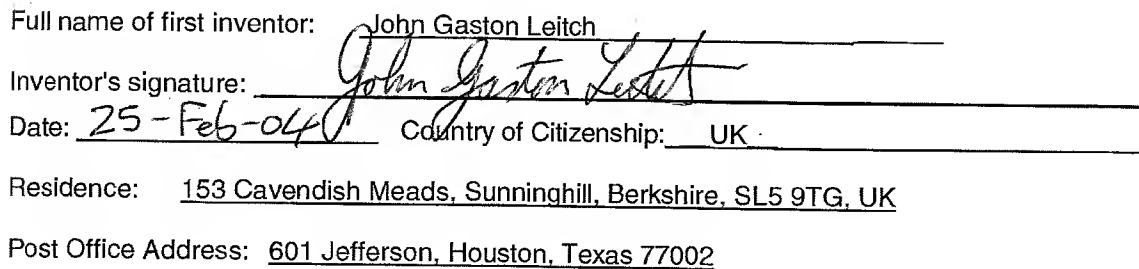 Full name of first inventor: John Gaston Leitch
Inventor's signature: John Gaston Leitch
Date: 25-Feb-04 Country of Citizenship: UK
Residence: 153 Cavendish Meads, Sunninghill, Berkshire, SL5 9TG, UK
Post Office Address: 601 Jefferson, Houston, Texas 77002